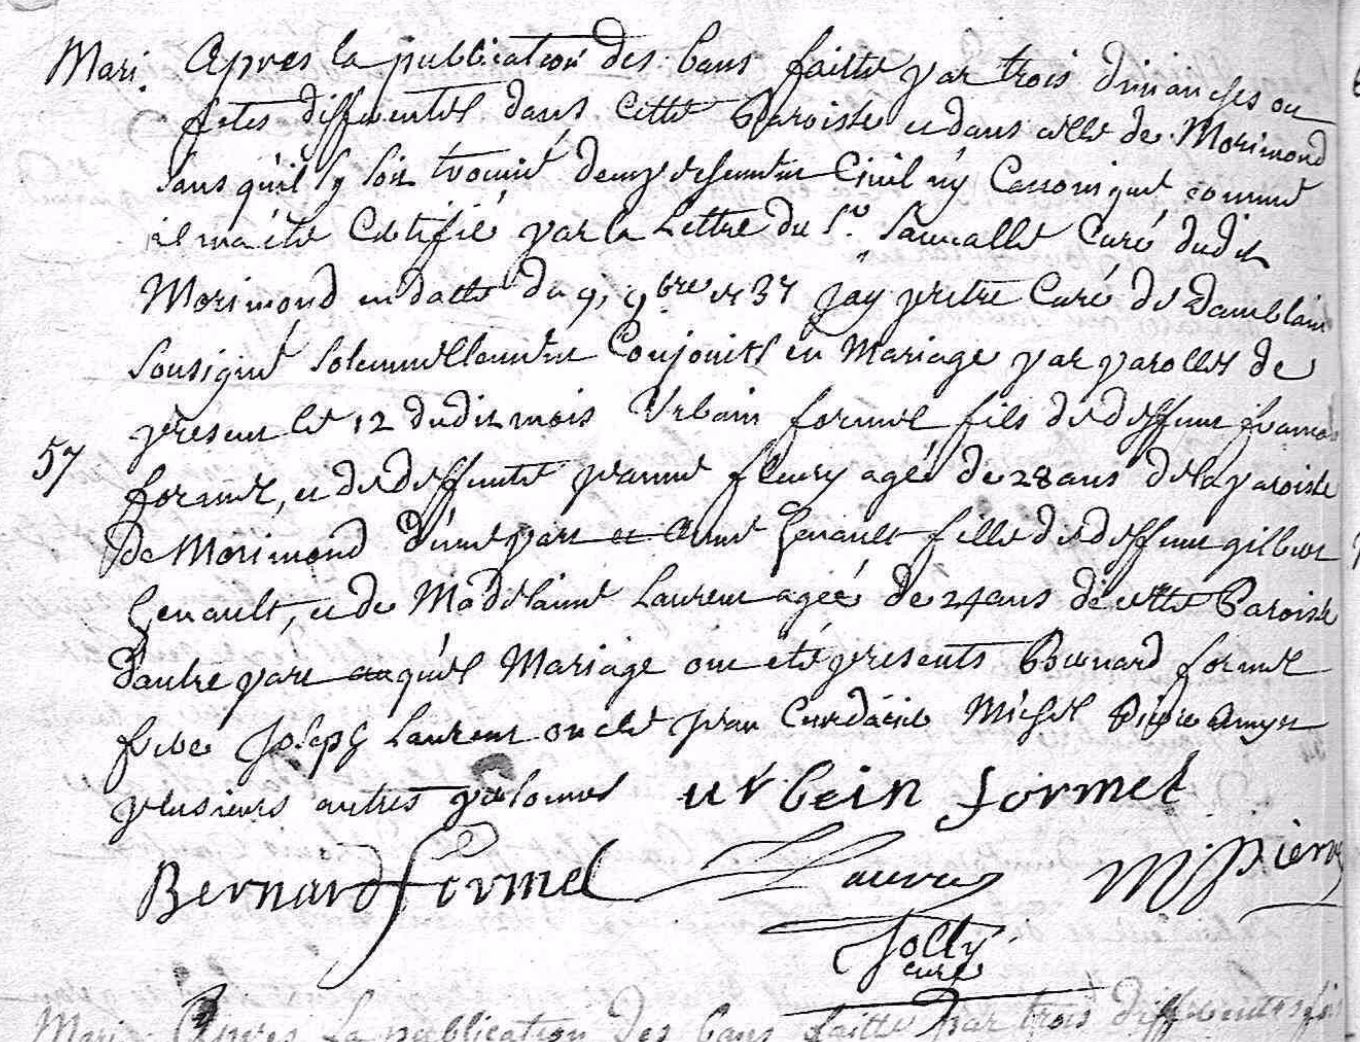 Mari. Apres la publication des bans faitte par trois dimanches ou
fetes differentes dans cette Paroisse et dans celle de Morimond
sans qu'il sy soit trouvé d'empeschement Civil ny Cannonique comme
il m'a été Certifié par la Lettre du Sr. Curé dudit
Morimond en datte du 9, 9bre 1737 jay pretre Curé de Damblain
sousigné solemnellement Conjoints en Mariage par parolles de
present le 12 dudit mois Urbain formel fils de deffunt francois
57 formel, et de deffunte jeanne fleury agé de 28 ans de la paroisse
De Morimond d'une part et Anne Henault fille de deffunt gilbert
Henault, et de Madelainne Laurent ageé de 24 ans de cette Paroisse
d'autre part auquel Mariage ont eté presents Bernard formel
frere Joseph Laurent oncle jean Michel Pierre amys et
plusieurs autres personnes urbein formel
Bernard formel Laurent M pierre
Jolly
curé
Mari. Apres La publication des bans faitte par trois differentes